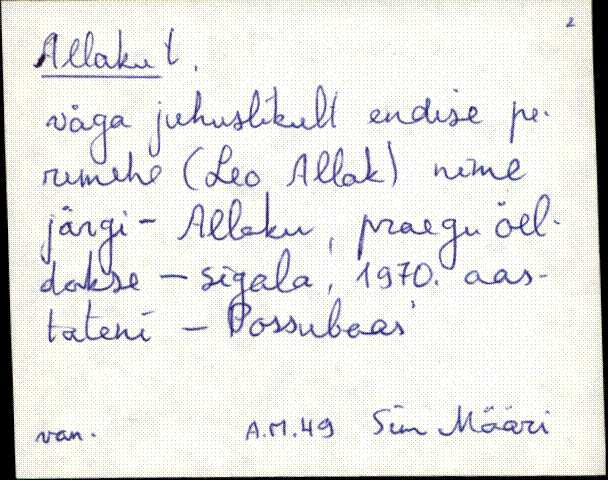 2
Allaku t.
väga juhuslikult endise pe-
remehe (Leo Allak) nime
järgi - Allaku, praegu öel-
dakse - sigala, 1970. aas-
tateni - Possubaas
van. A.M.49 Siim Määri